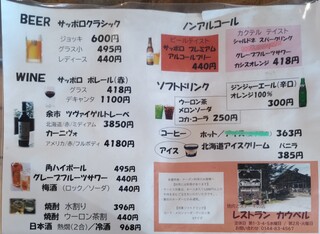 BEER サッポロクラシック
ジョッキ 600円
グラス小 495円
レディース 440円
WINE サッポロ ポレール(赤)
グラス 418円
デキャンタ 1100円
余市 ツヴァイゲルトレーベ
北海道/赤/ミディアム 3850円
カーニヴォ
アメリカ/赤/フルボディ 4180円
角ハイボール 495円
グレープフルーツサワー 440円
梅酒(ロック/ソーダ) 440円
焼酎 水割り 396円
焼酎 ウーロン茶割 440円
日本酒 熱燗(2合)/冷酒 968円
ノンアルコール
ビールテイスト
サッポロ プレミアム
アルコールフリー
440円
カクテル テイスト
シャルドネ スパークリング
グレープフルーツサワー
カシスオレンジ 418円
ソフトドリンク
ウーロン茶
メロンソーダ
コカ・コーラ 250円
ジンジャーエール(辛口)
オレンジ100%
300円
コーヒー ホット/ 363円
アイス 北海道アイスクリーム バニラ
385円
レストラン カウベル